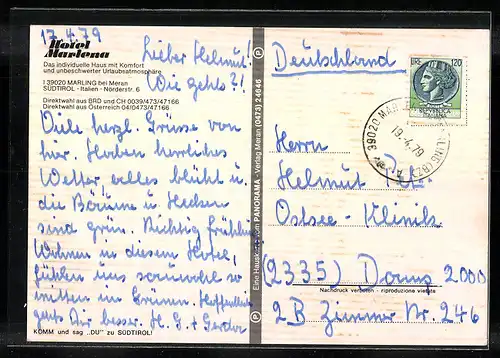 17.4.79
Hotel
Marlena
Das individuelle Haus mit Komfort
und unbeschwerter Urlaubsatmosphäre
I 39020 MARLING bei Meran
SÜDTIROL - Italien - Nörderstr. 6
Direktwahl aus BRD und CH 0039/473/47166
Direktwahl aus Österreich 04/0473/47166
Lieber Helmut!
Wie gehts?!
Viele herzl. Grüsse von
hier. Haben herrliches
Wetter, alles blüht u.
die Bäume u. Hecken
sind grün. Richtig Frühling
Wohnen in diesem Hotel,
fühlen uns sauwohl so
mitten im Grünen. Hoffentlich
gehts Dir besser. H. G. + Gerda
KOMM und sag „DU" zu SÜDTIROL!
Eine Hauskarte vom PANORAMA-Verlag Meran (0473) 24646
Deutschland
LIRE 120
39020 MAR
19.-4.79
Herrn
Helmut
Ostsee-Klinik
(2335) Damp 2000
Nachdruck verboten - riproduzione vietata
2B Zimmer Nr. 246